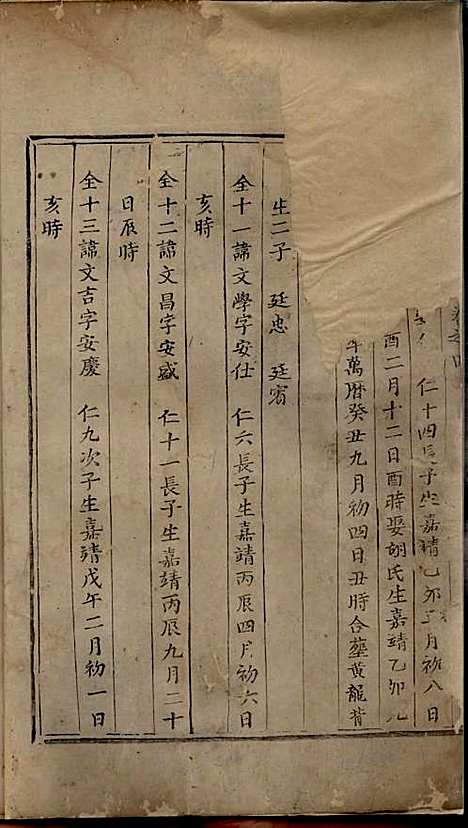 仁十四長子生嘉靖乙卯二月初八日
酉二月十二日酉時娶胡氏生嘉靖乙卯九
年萬曆癸丑九月初四日丑時合塟黄龍背
生二子 廷忠 廷賓
仝十一諱文學字安仕 仁六長子生嘉靖丙辰四月初六日
亥時
仝十二諱文昌字安盛 仁十一長子生嘉靖丙辰九月二十
日辰時
仝十三諱文吉字安慶 仁九次子生嘉靖戊午二月初一日
亥時